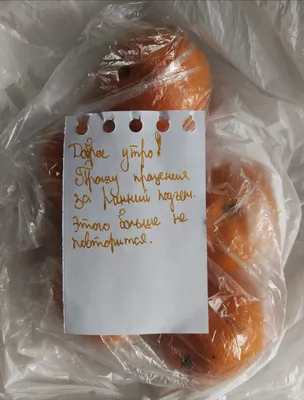 Доброе утро!
Прошу прощения
за ранний подъем.
Этого больше не
повторится.